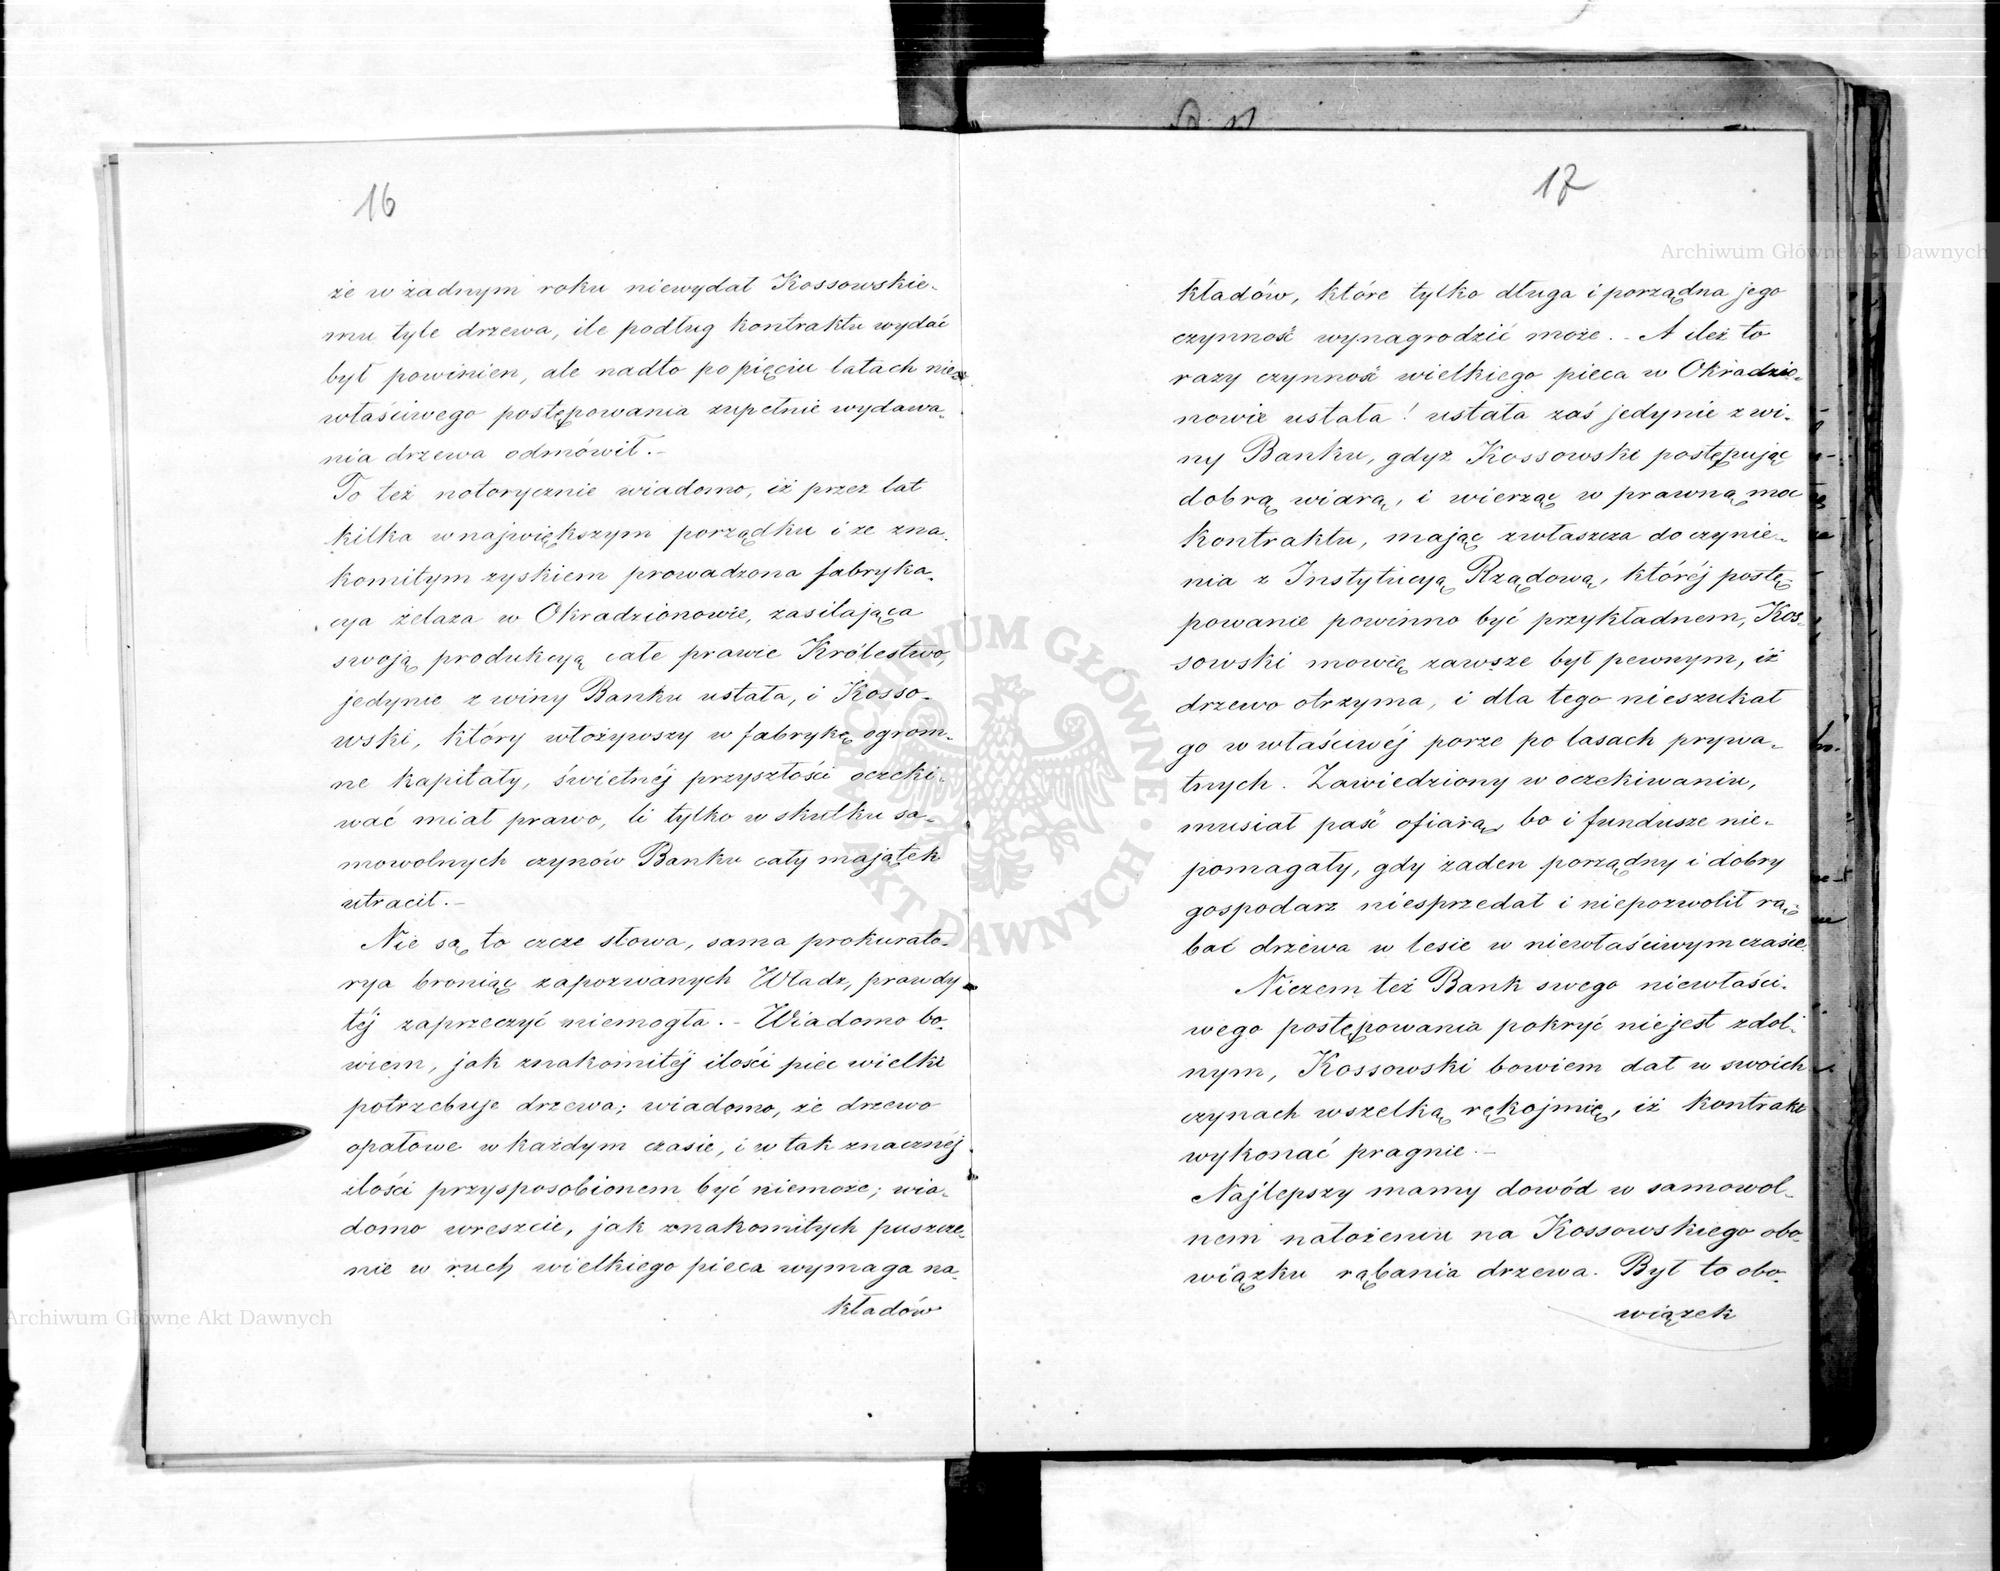 16
że w żadnym roku niewydał Kossowskie-
mu tyle drzewa, ile podług kontraktu wydać
był powinien, ale nadto po pięciu latach nie-
właściwego postępowania zupełnie wydawa-
nia drzewa odmówił.-
To też notorycznie wiadomo, iż przez lat
kilka w największym porządku i ze zna-
komitym zyskiem prowadzona fabryka-
cya żelaza w Okradzionowie, zasilająca
swoją produkcyą całe prawie Królestwo,
jedynie z winy Banku ustała, i Kosso-
wski, który włożywszy w fabrykę ogrom-
ne kapitały, świetnéj przyszłości oczeki-
wać miał prawo, li tylko w skutku sa-
mowolnych czynów Banku cały majątek
utracił.-
Nie są to czcze słowa, sama prokurato-
rya broniąc zapozwanych Władz, prawdy
téj zaprzeczyć niemogła.- Wiadomo bo-
wiem, jak znakomitéj ilości piec wielki
potrzebuje drzewa; wiadomo, że drzewo
opałowe w każdym czasie, i w tak znacznéj
ilości przysposobionem być niemoże; wia-
domo wreszcie, jak znakomitych puszcze-
nie w ruch wielkiego pieca wymaga na-
kładów
17
kładów, które tylko długa i porządna jego
czynność wynagrodzić może.- A ileż to
razy czynność wielkiego pieca w Okradzio-
nowie ustała! ustała zaś jedynie z wi-
ny Banku, gdyż Kossowski postępując
dobrą wiarą, i wierząc w prawną moc
kontraktu, mając zwłaszcza do czynie-
nia z Instytucyą Rządową, któréj postę-
powanie powinno być przykładnem, Kos-
sowski mowię zawsze był pewnym, iż
drzewo otrzyma, i dla tego nieszukał
go w właściwéj porze po lasach prywa-
tnych. Zawiedziony w oczekiwaniu,
musiał paść ofiarą, bo i fundusze nie-
pomagały, gdy żaden porządny i dobry
gospodarz niesprzedał i niepozwolił rą-
bać drzewa w lesie w niewłaściwym czasie.
Niczem też Bank swego niewłaści-
wego postępowania pokryć niejest zdol-
nym, Kossowski bowiem dał w swoich
czynach wszelką rękojmię, iż kontrakt
wykonać pragnie.-
Najlepszy mamy dowód w samowol-
nem nałożeniu na Kossowskiego obo-
wiązku rąbania drzewa. Był to obo-
wiązek
Archiwum Główne Akt Dawnych
Archiwum Główne Akt Dawnych
ARCHIWUM GŁÓWNE AKT DAWNYCH